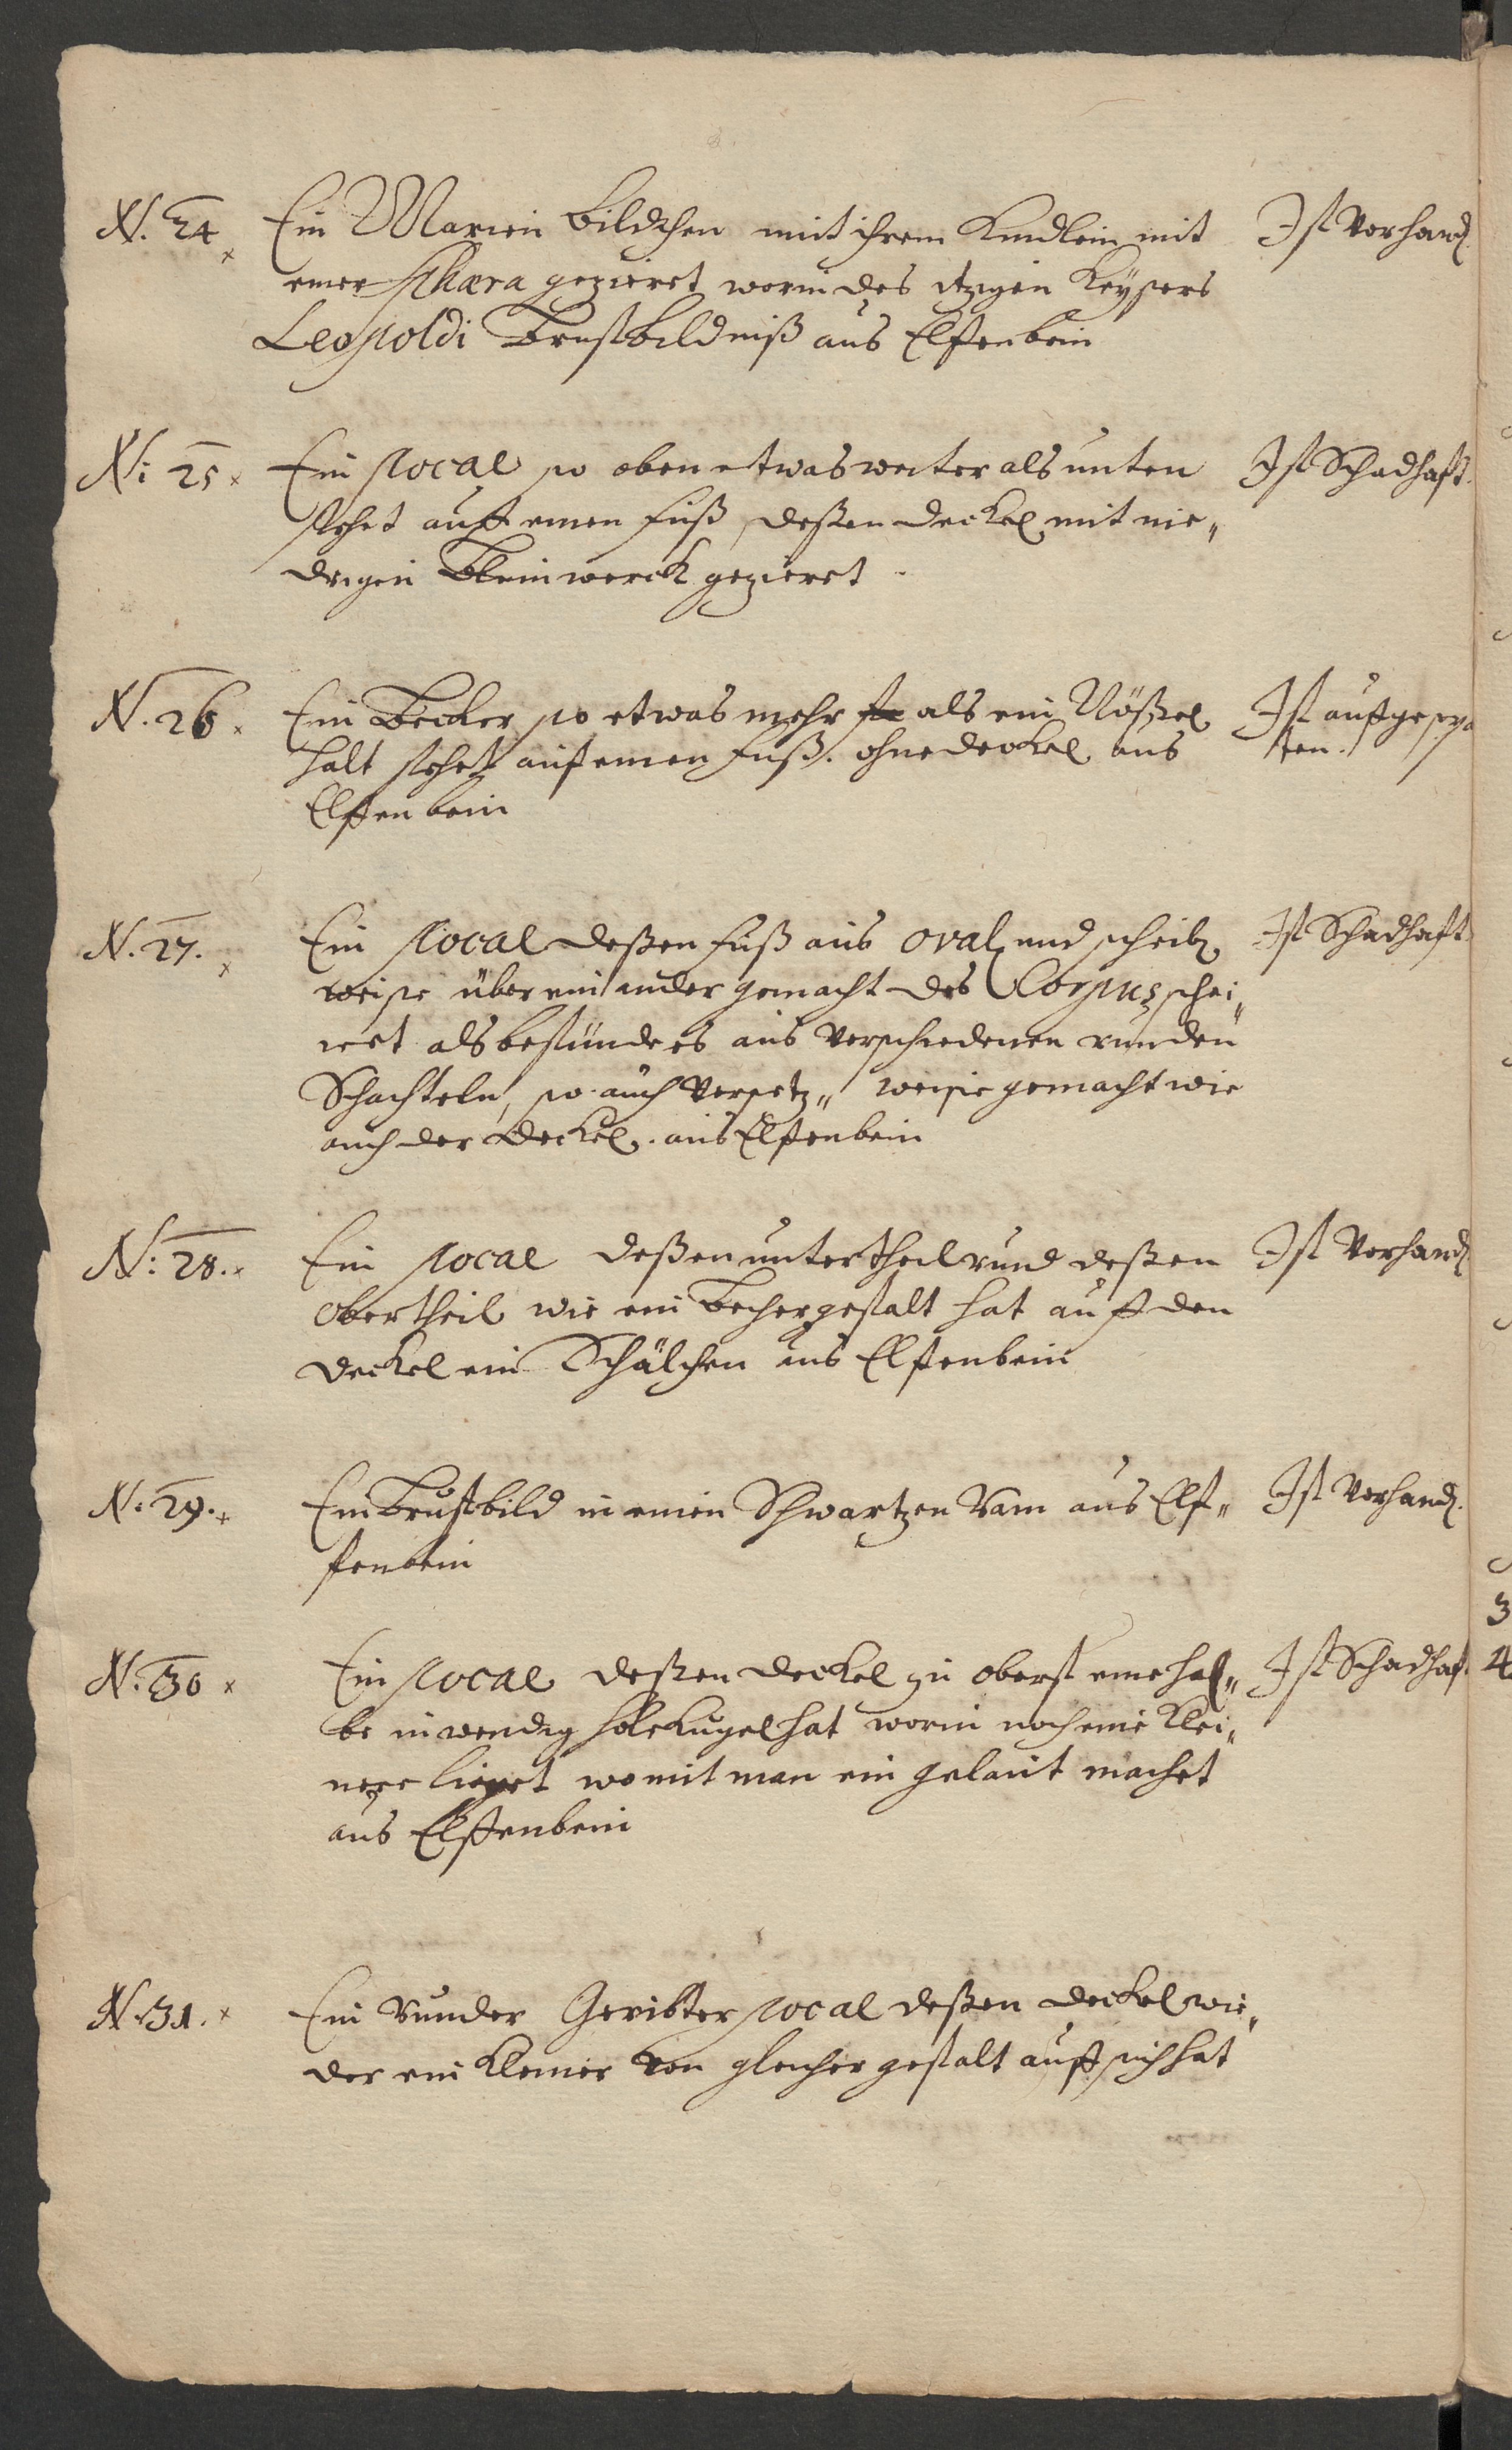 N. 24 x Ein Marien bildchen mit ihrem Kindlein mit Ist Vorhand.
einer Sphæra gezieret, worin des itzigen Keysers
Leopoldi Brustbildniß aus Elffenbein
N: 25 x Ein Pocal so oben etwas weiter als unten Ist Schadhafft.
stehet auff einen Fuß, deßen Deckel mit nie„
drigen Bleinwerck gezieret
N. 26. x Ein Becher so etwas mehr als ein Nößel Ist auffgespa
halt stehet auf einen Fuß. ohne deckel aus lten.
Elffenbein
N. 27. x Ein Pocal deßen Fuß aus oval und scheib Ist Schadhafft
weise über einander gemacht des Corpus schei„
net als bestünde es aus Verschiedenen runden
Schachteln, so auch Versetz„ weise gemacht wie
auch der Deckel. aus Elffenbein
N: 28. x Ein Pocal deßen untertheil rund deßen Ist Vorhand
obertheil wie ein Becher gestalt hat auff den
Deckel ein Schälchen aus Elffenbein
N: 29. x Ein Brustbild in einen Schwartzen Ram aus Elf„ Ist Vorhand.
fenbein
N: 30 x Ein Pocal deßen deckel zu oberst eine hal„ Ist Schadhaf
be inwendig hole Kugel hat worin noch eine Klei„
nere lieget womit man ein gelaut machet
aus Elffenbein
N. 31. x Ein Runder Geribter Pocal deßen deckel wie„
der ein Kleiner von gleicher gestalt auff sich hat
3
4